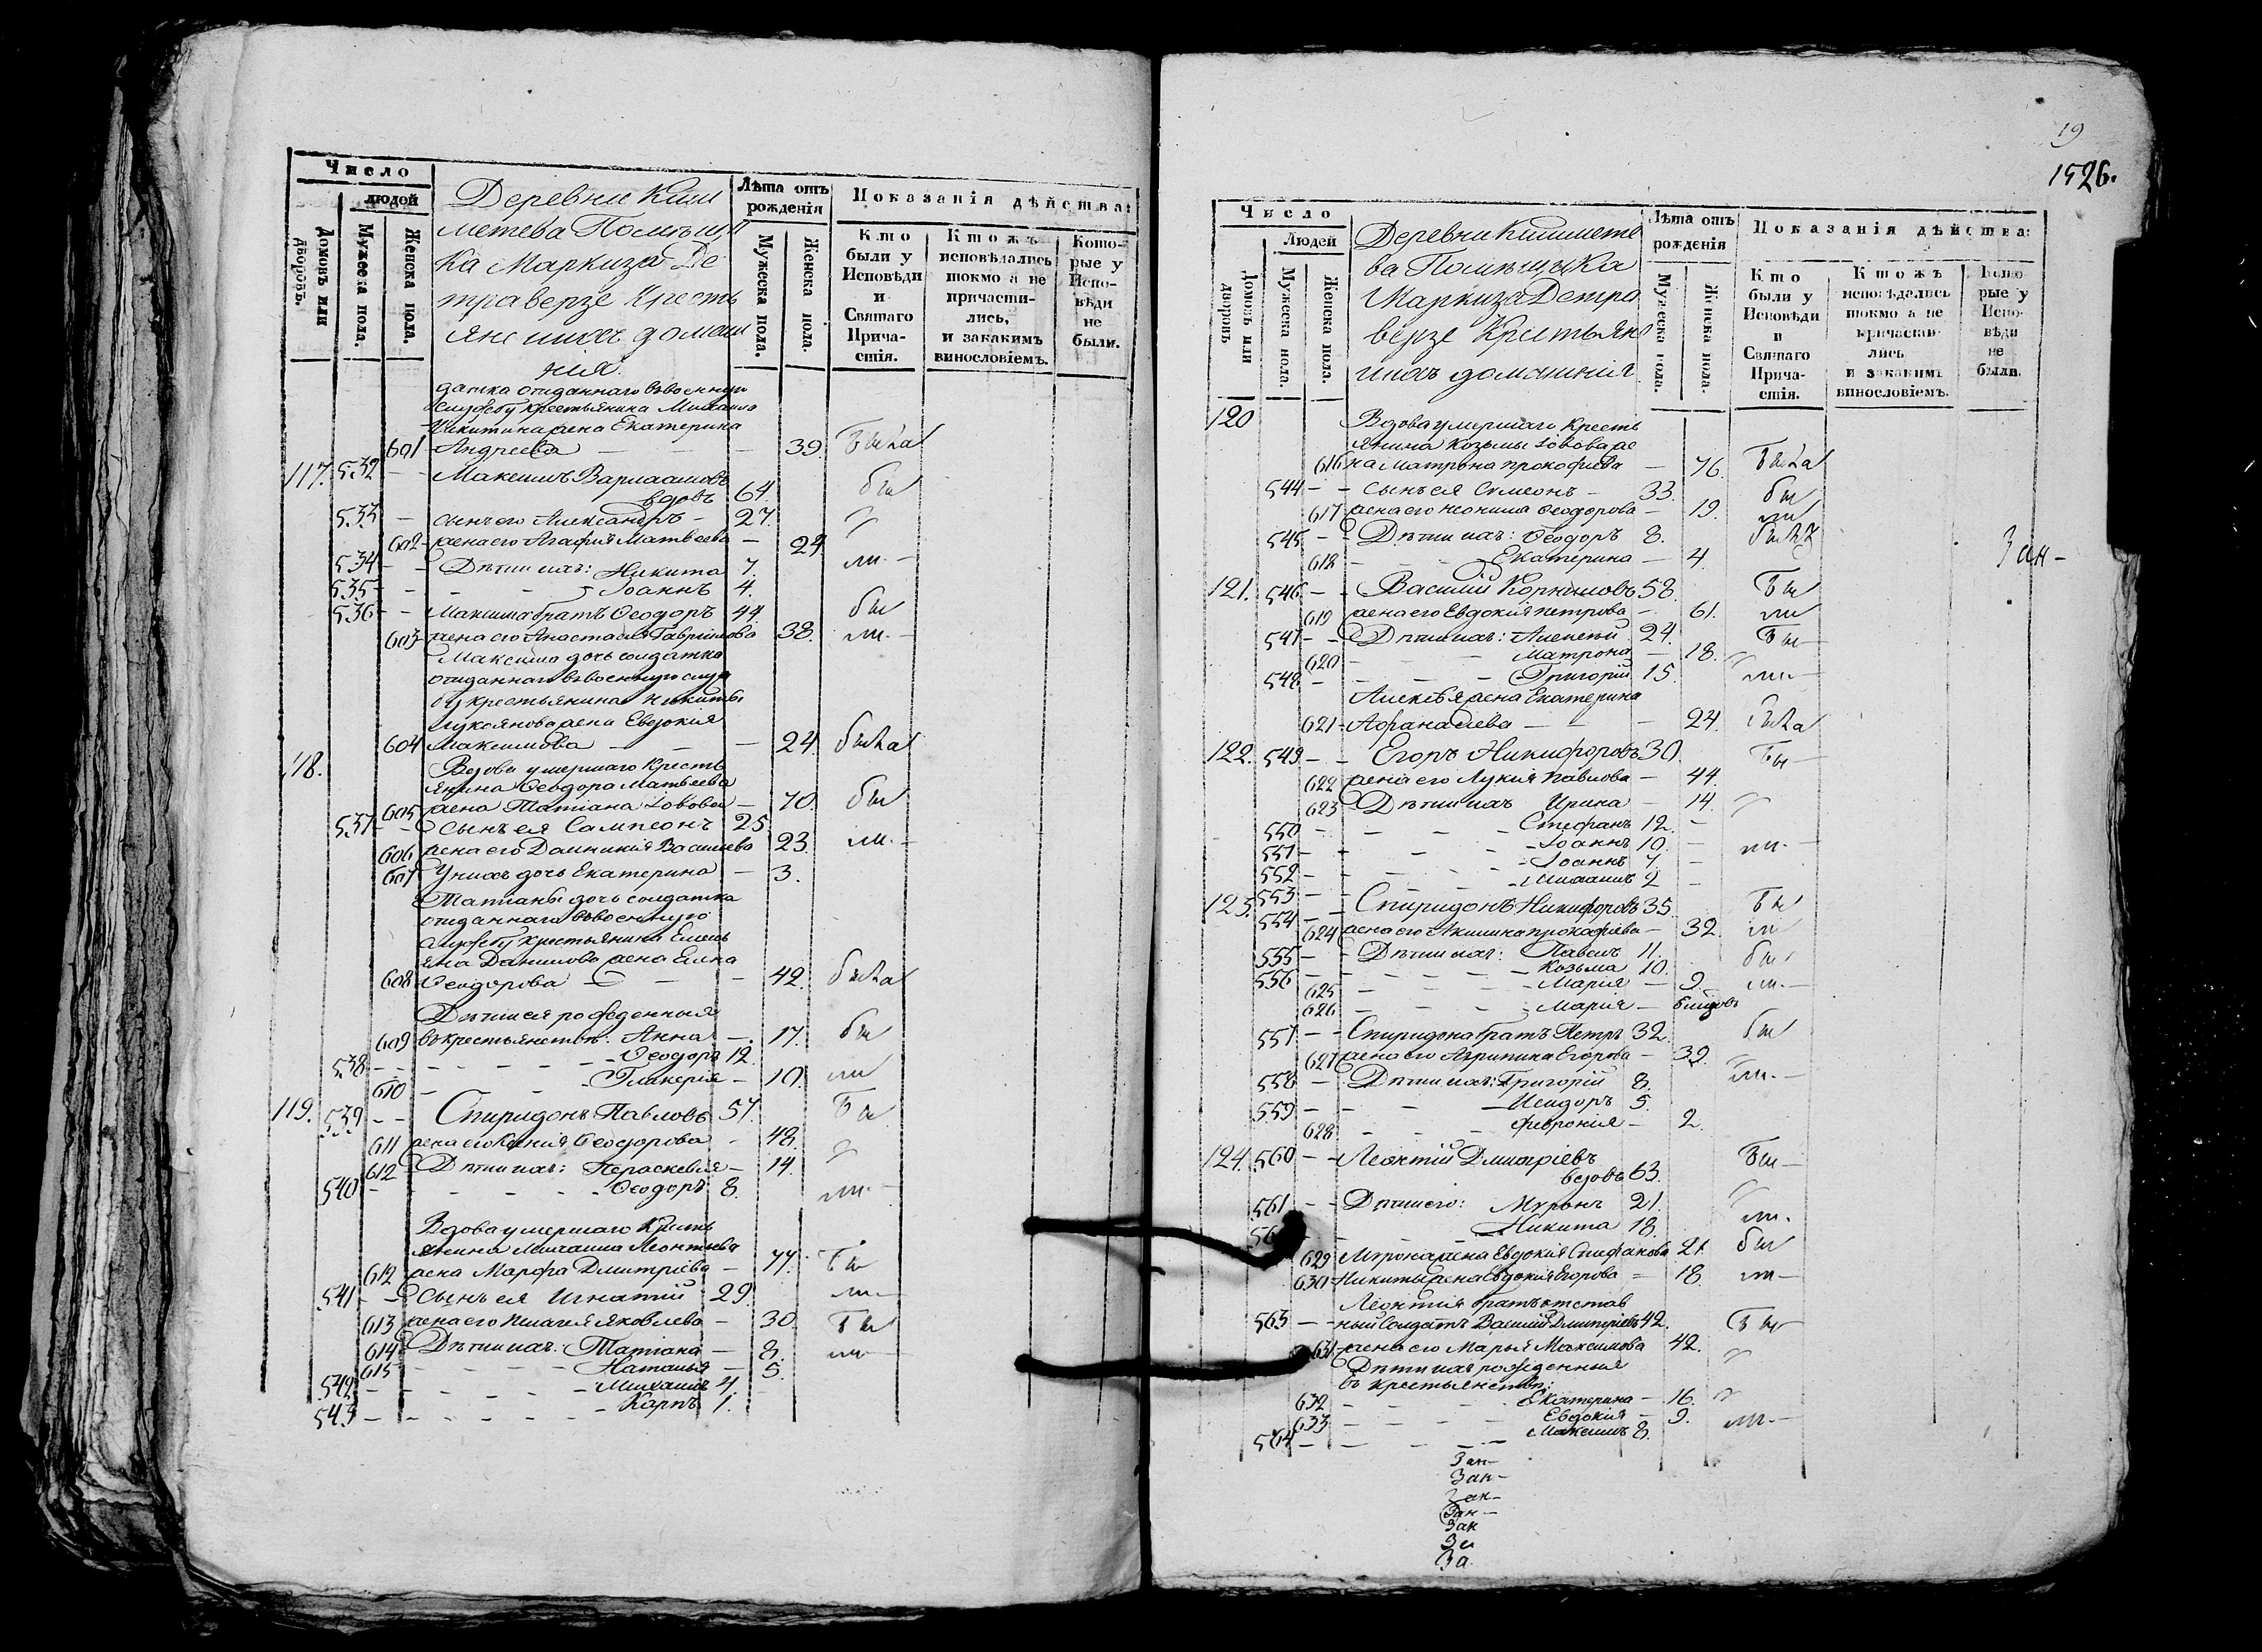 Число
людей
Домовъ или дворовъ.
Мужеска пола.
Женска пола.
Деревни Киш
метева Помѣщи
ка Маркиза Де
траверзе Кресть
яне ихъ домаш
нія
Лѣта отъ
рожденія
Мужеска пола.
Женска пола.
Показанія дѣйства:
Кто были у Исповѣди и Святаго Прича-стія.
Ктожъ исповѣдались токмо а не причасти-лись, и закакимъ винословіемъ.
Кото-рые у Испо-вѣди не были.
датка отданнаго въвоенную
службу крестьянина Михаила
Никитина жена Екатерина
601 Андреева — 39. была
117. 532 — Максимъ Варлаамовъ
вдовъ 64. бы
533 — сынъ его Александръ — 27.
602 жена его Агафия Матвеева — 24
534 — Дѣти ихъ: Никита 7. ли.
535 — Іоаннъ 4.
536 — Максима братъ Ѳеодоръ 44. бы
603 жена его Анастасия Гаврилова 38. ли.
Максима дочь солдатка
отданнаго въвоенную служ
бу крестьянина Никиты
Лукоянова жена Евдокия
604 Максимова — 24. была
118. Вдова умершаго Кресть
янина Ѳеодора Матвеева
605 жена Татіана Іовова — 70. бы
537 — Сынъ ея Сампсонъ 25
606 жена его Домникия Васильева 23. ли.
607 У нихъ дочь Екатерина — 3.
Татианы дочь солдатка
отданнаго въвоенную
службу крестьянина Емель
яна Данилова жена Елена
608 Ѳеодорова — 42. была
Дѣти ея рожденныя
609 въкрестьянствѣ: Анна — 17. бы
538 — Ѳеодоръ 12
610 — Гликерия — 10. ли
119. 539 — Спиридонъ Павловъ 57. Бы
611 жена его Ксения Ѳеодорова — 48.
612 Дѣти ихъ: Параскевия — 14.
540 — Ѳеодоръ 8. ли.
Вдова умершаго Кресть
янина Михаила Леонтьева
612 жена Марфа Дмитріева — 77. Бы
541 — Сынъ ея Игнатий 29. ли
613 жена его Пелагея Яковлева — 30. Бы
614 Дѣти ихъ: Татіана — 8. ли
615 — Наталья — 5.
542 — Михаилъ 4.
543 — Карпъ 1.
19
1526.
Число
Людей
Домовъ или дворовъ
Мужеска пола.
Женска пола.
Деревни Кишмете
ва Помѣщика
Маркиза Детра
верзе Крестьяне
ихъ домашнія
Лѣта отъ
рожденія
Мужеска пола.
Женска пола.
Показанія дѣйства:
Кто были у Исповѣди и Святаго Прича-стія.
Ктожъ исповѣдались токмо а не причасти-лись и закакимъ винословіемъ.
Кото-рые у Испо-вѣди не были.
120 Вдова умершаго Кресть
янина Козьмы Іовова же
616 на Матрона Прокофиева — 76. Была
544 — сынъ ея Симеонъ — 33. бы
617 жена его Неонила Ѳеодорова — 19. ли
545 — Дѣти ихъ: Ѳеодоръ 8.
618 — Екатерина — 4
Зан-
121. 546 — Василій Корниловъ 58. Бы
619 жена его Евдокия Петрова — 61. ли
547 — Дѣти ихъ: Алексѣй 24. Бы
620 — Матрона — 18.
548 — Григорій 15. ли
Алексѣя жена Екатерина
621 Афанасиева — 24. была
122. 549 — Егоръ Никифоровъ 30. Бы
622 жена его Лукия Павлова — 44.
623 Дѣти ихъ Ирина — 14.
550 — Стефанъ 12.
551 — Іоаннъ 10. ли.
552 — Іоаннъ 7.
553 — Михаилъ 2
123. 554 — Спиридонъ Никифоровъ 35. Бы
624 жена его Акилина Прокофиева — 32. ли
555 — Дѣти ихъ: Павелъ 11. бы
556 — Козьма 10.
625 — Мария — 9. ли.
626 — Мария —
557 — Спиридона братъ Петръ 32. бы
627 жена его Агрипина Егорова — 39.
558 — Дѣти ихъ: Григорій 8. ли.
559 — Исидоръ 5.
628 — Феврония — 2.
124. 560 — Леонтій Дмитріевъ
вдовъ 63. Бы
561 — Дѣти его: Миронъ 21.
56 — Никита 18. ли.
629 Мирона жена Евдокія Стефанова 21. бы
630 Никиты жена Евдокия Егорова — 18. ли
Леонтия братъ отстав
563 — ный Солдатъ Василій Дмитріевъ 42. Бы
631 жена его Марья Максимова 42.
Дѣти ихъ рожденныя
въ крестьянствѣ:
632 — Екатерина — 16.
633 — Евдокия — 9. ли.
564 — Максимъ 8.
Зан-
Зан-
Зан-
Зан-
Зан
За
За